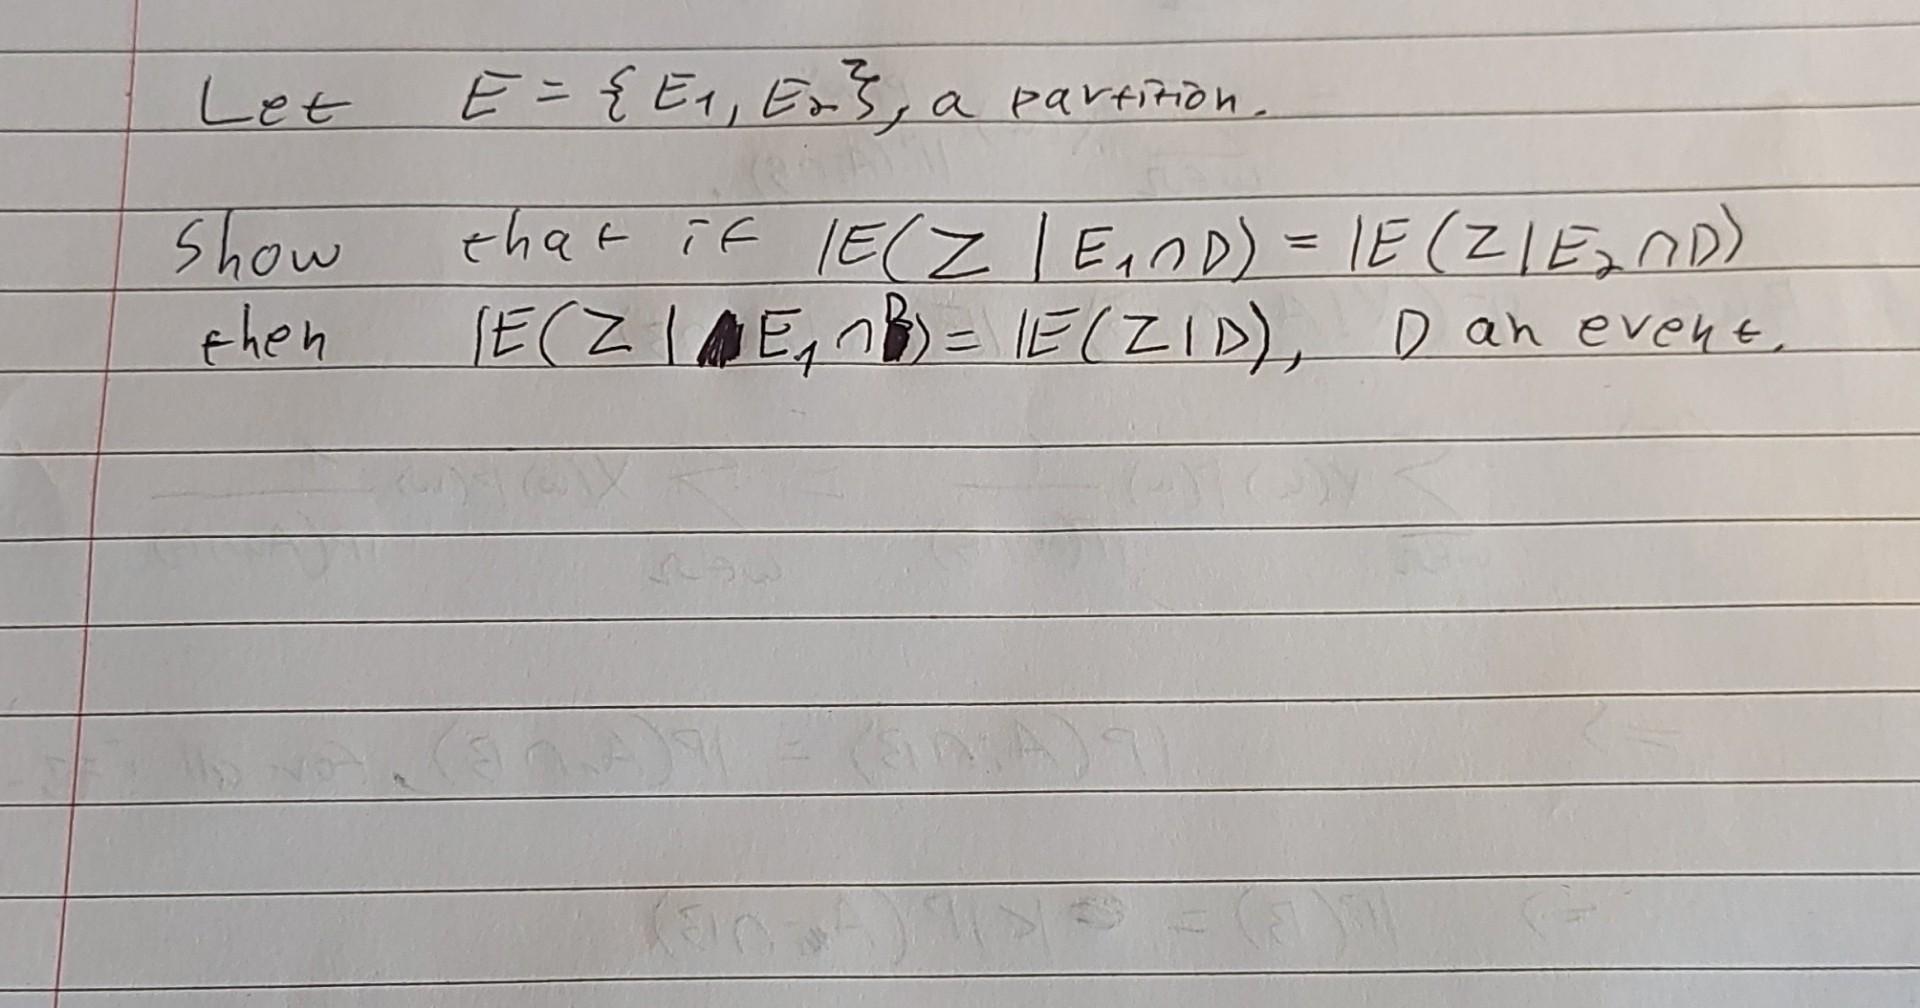 Let E = {E₁, E₂}, a partition.
Show that if 𝔼(Z | E₁∩D) = 𝔼(Z | E₂∩D)
then 𝔼(Z | E₁∩ ) = 𝔼(Z|D), D an event.